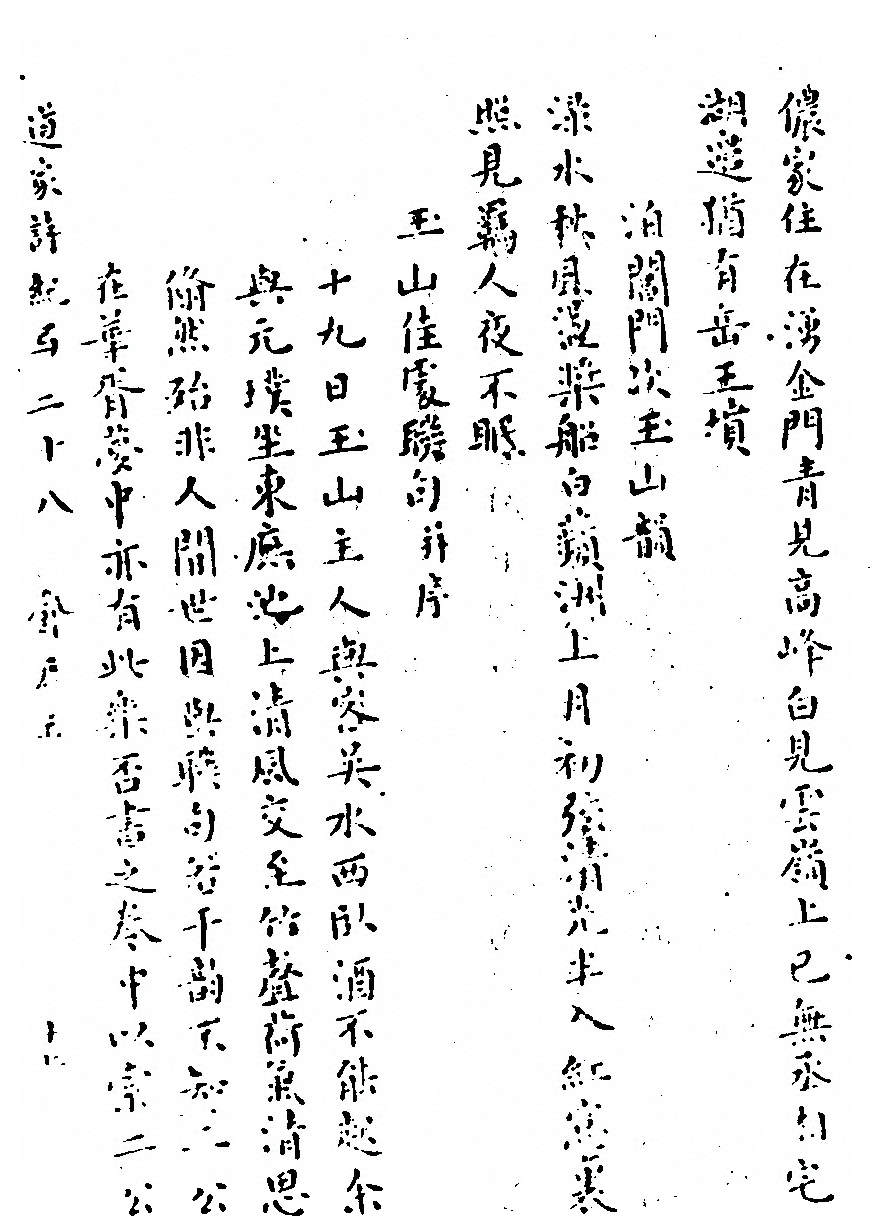 儂家住在湧金門青見高峰白見雲嶺上已無丞相宅
湖邊猶有岳王墳
泊閶門次玉山韻
渌水秋風漾槳船白蘋洲上月初弦清光半入紅窓裏
照見羈人夜不眠
玉山佳處聯句并序
十九日玉山主人與客吳水西臥酒不能起余
與元璞坐東廡池上清風交至竹聲荷氣清思
翛然殆非人間世因與聯句若干韻不知二公
在華胥夢中亦有此樂否書之卷中以索二公
道家詩紀 二十八